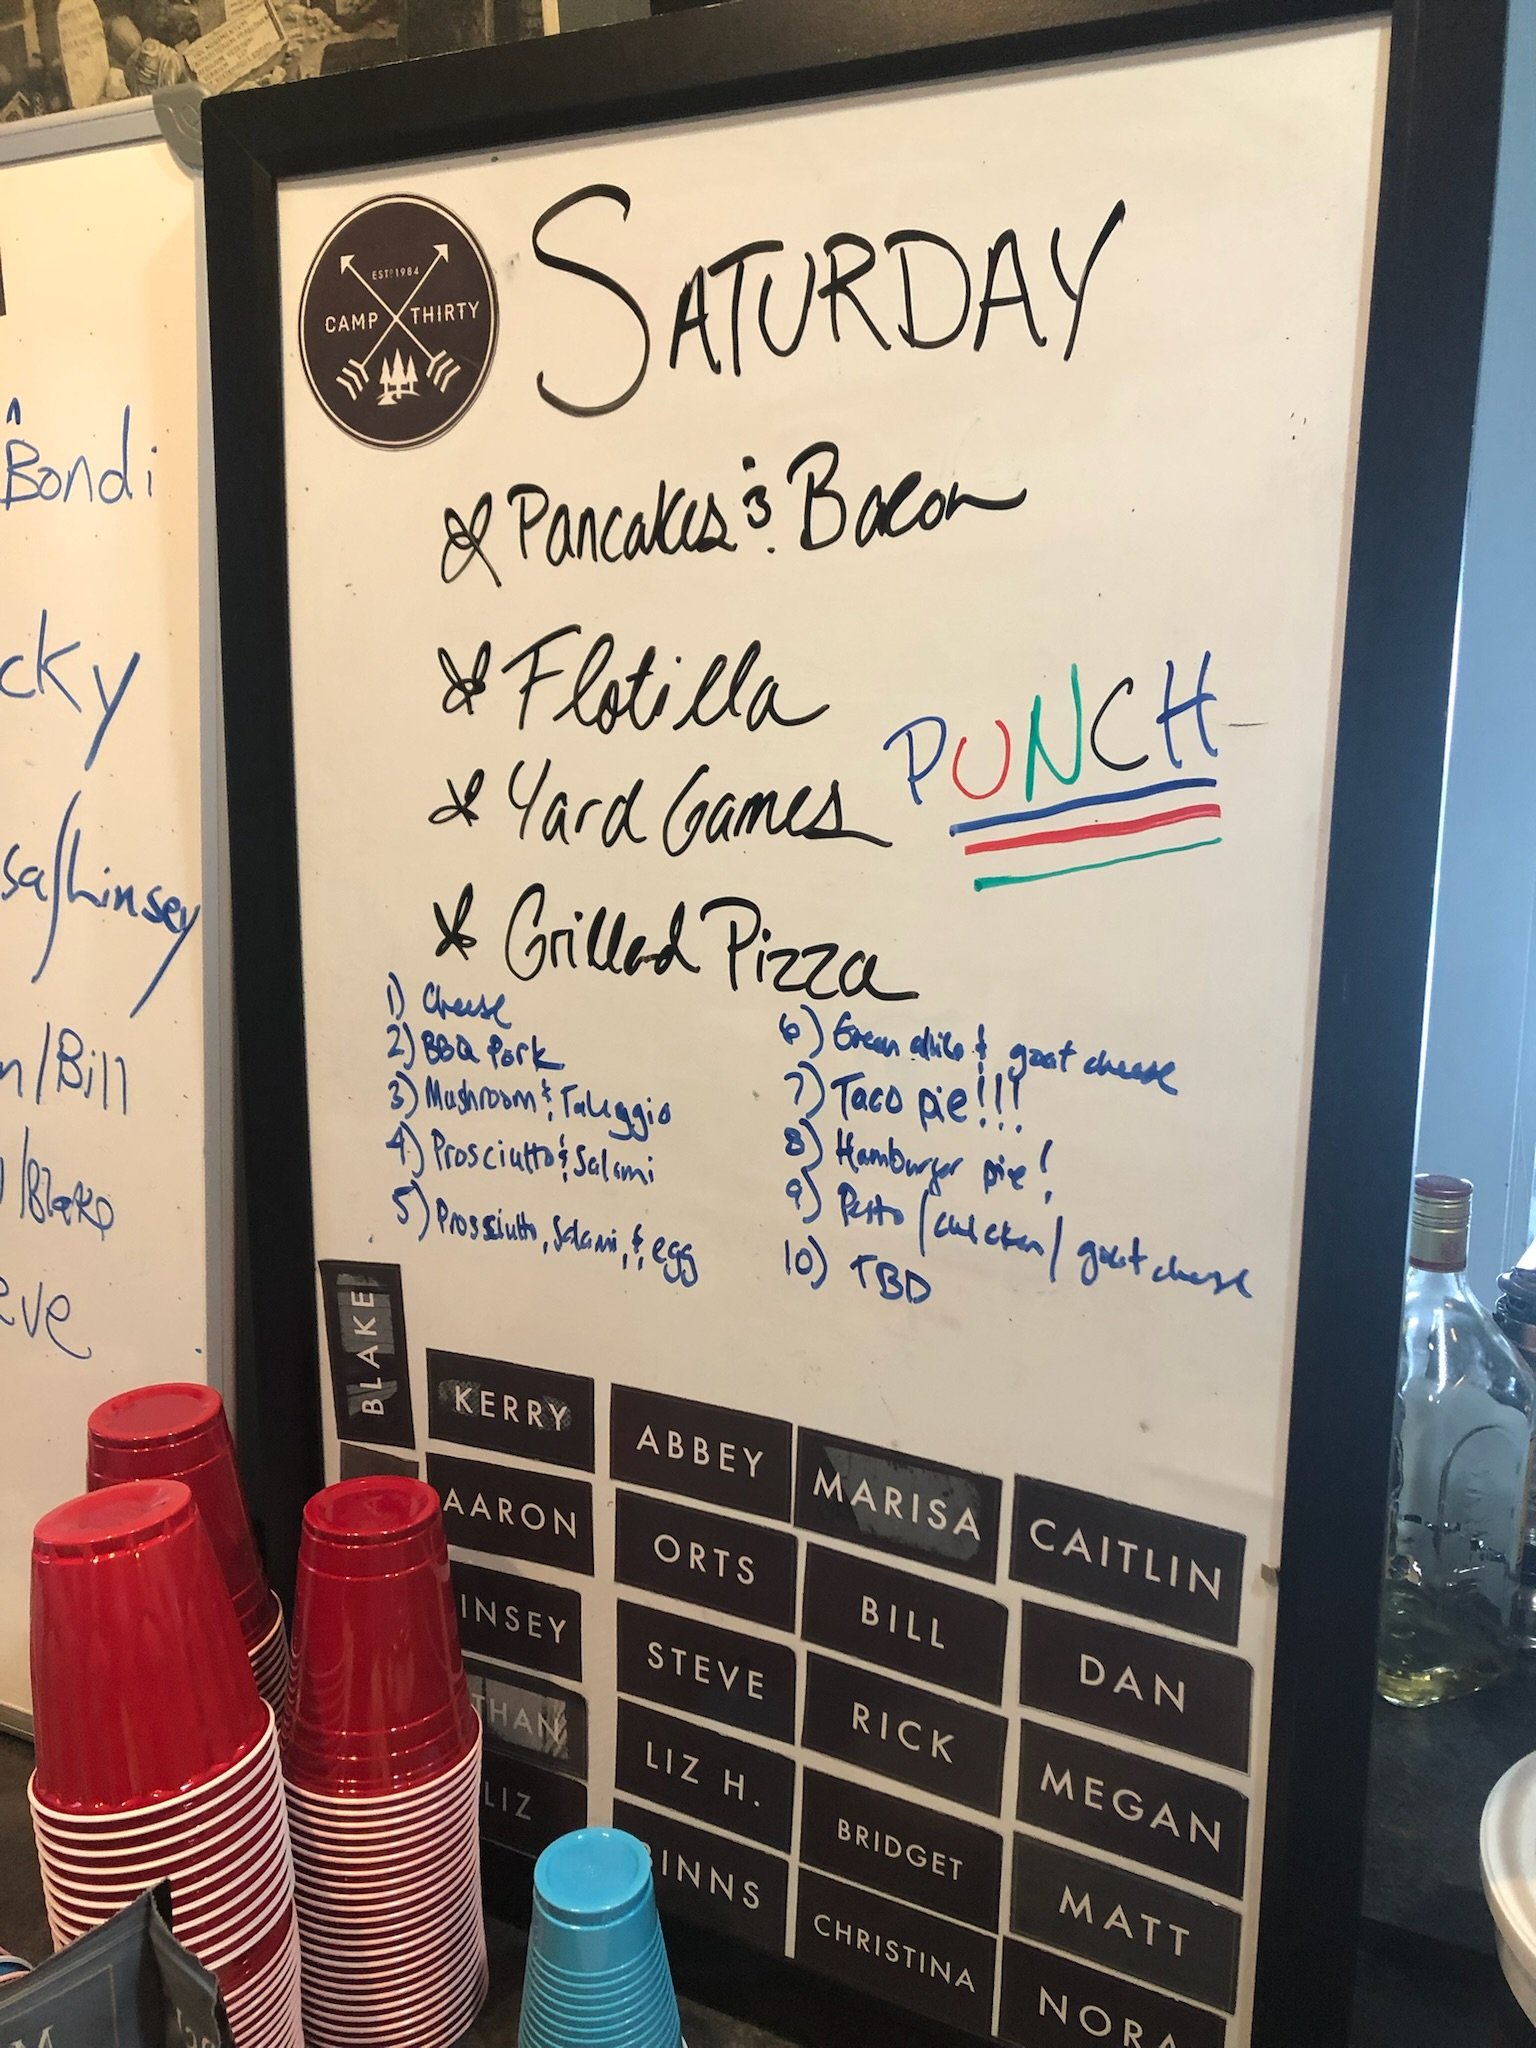 Bondi
cky
sa/Linsey
n/Bill
/Blake
eve
EST. 1984
CAMP THIRTY
SATURDAY
Pancakes & Bacon
Flotilla
Yard Games
PUNCH
Grilled Pizza
1) Cheese
2) BBQ Pork
3) Mushroom & Taleggio
4) Prosciutto & Salami
5) Prossiutto, Salami, & egg
6) Green chile & goat cheese
7) Taco pie!!!
8) Hamburger pie!
9) Pesto/chicken/goat cheese
10) TBD
BLAKE
KERRY
ABBEY
MARISA
CAITLIN
AARON
ORTS
BILL
DAN
INSEY
STEVE
RICK
MEGAN
THAN
LIZ H.
BRIDGET
MATT
LIZ
BINNS
CHRISTINA
NORA